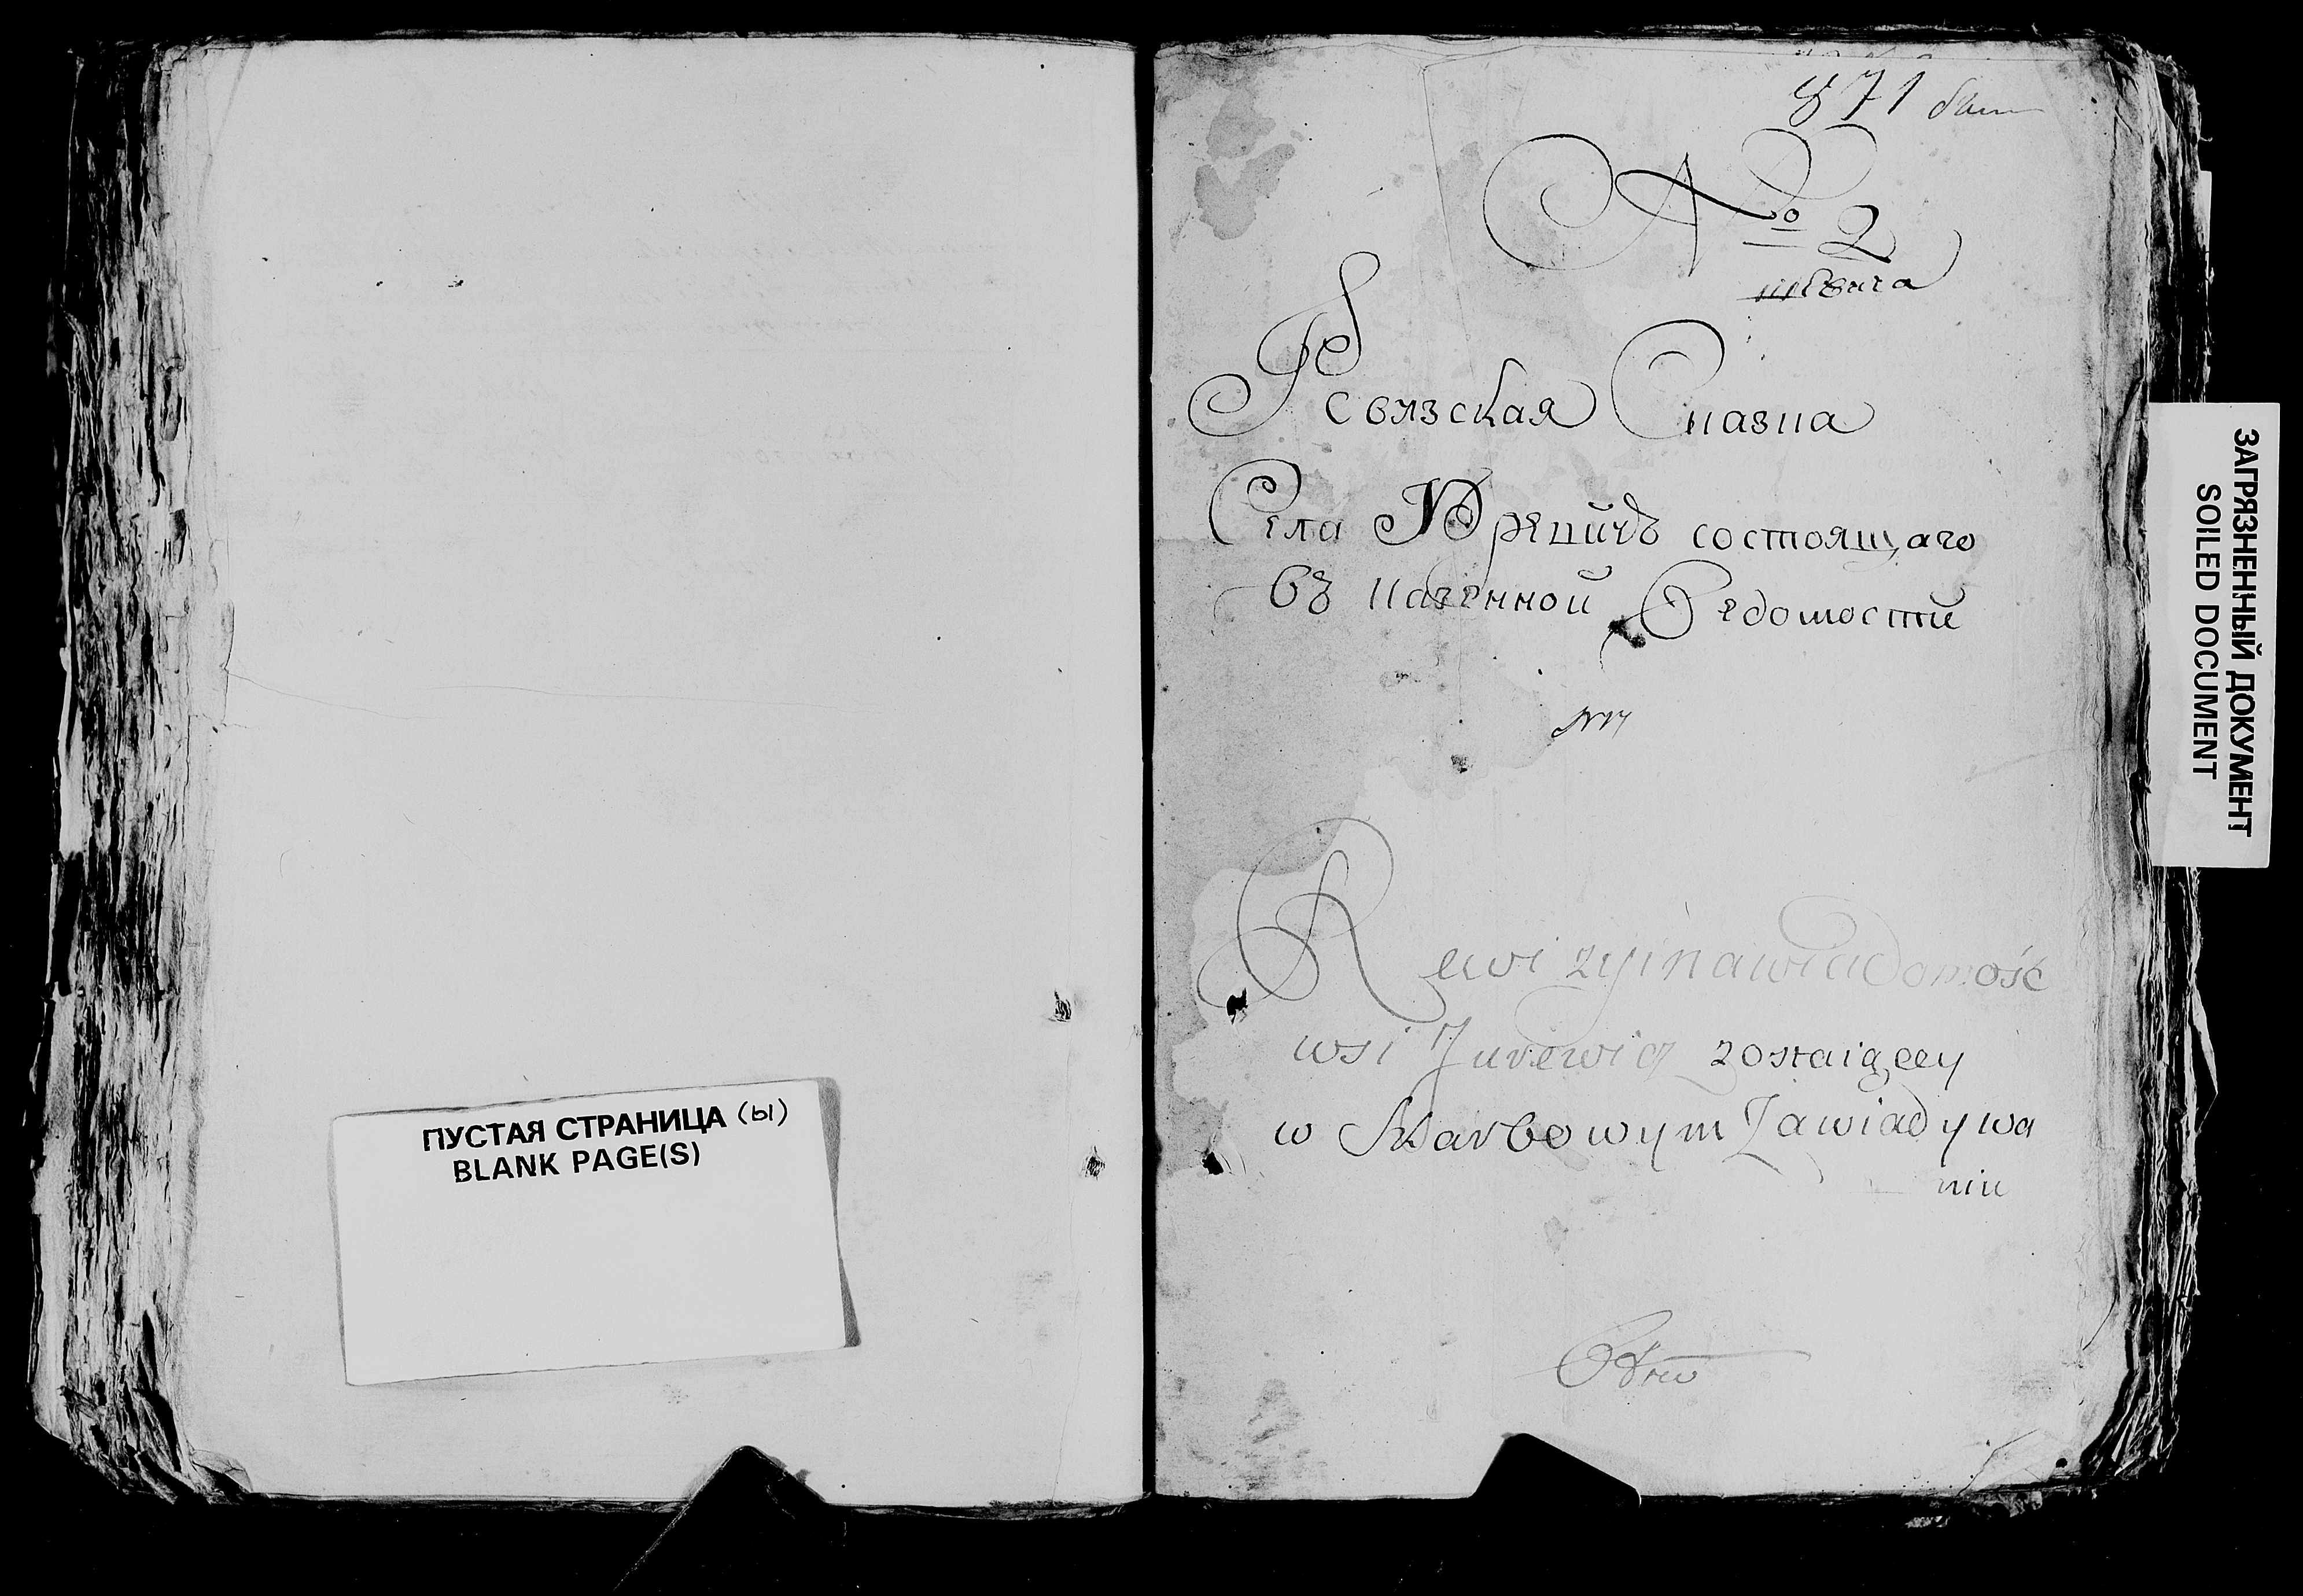 ПУСТАЯ СТРАНИЦА (ы)
BLANK PAGE(S)
871
№ 2
Ревизская Сказка
Села Юревичь состоящаго
въ казенной Ведомости
Rewizyina wiadomość
wsi Jurewicz zostaiącey
w Skarbowym Zawiadywa
niu
ЗАГРЯЗНЕННЫЙ ДОКУМЕНТ
SOILED DOCUMENT